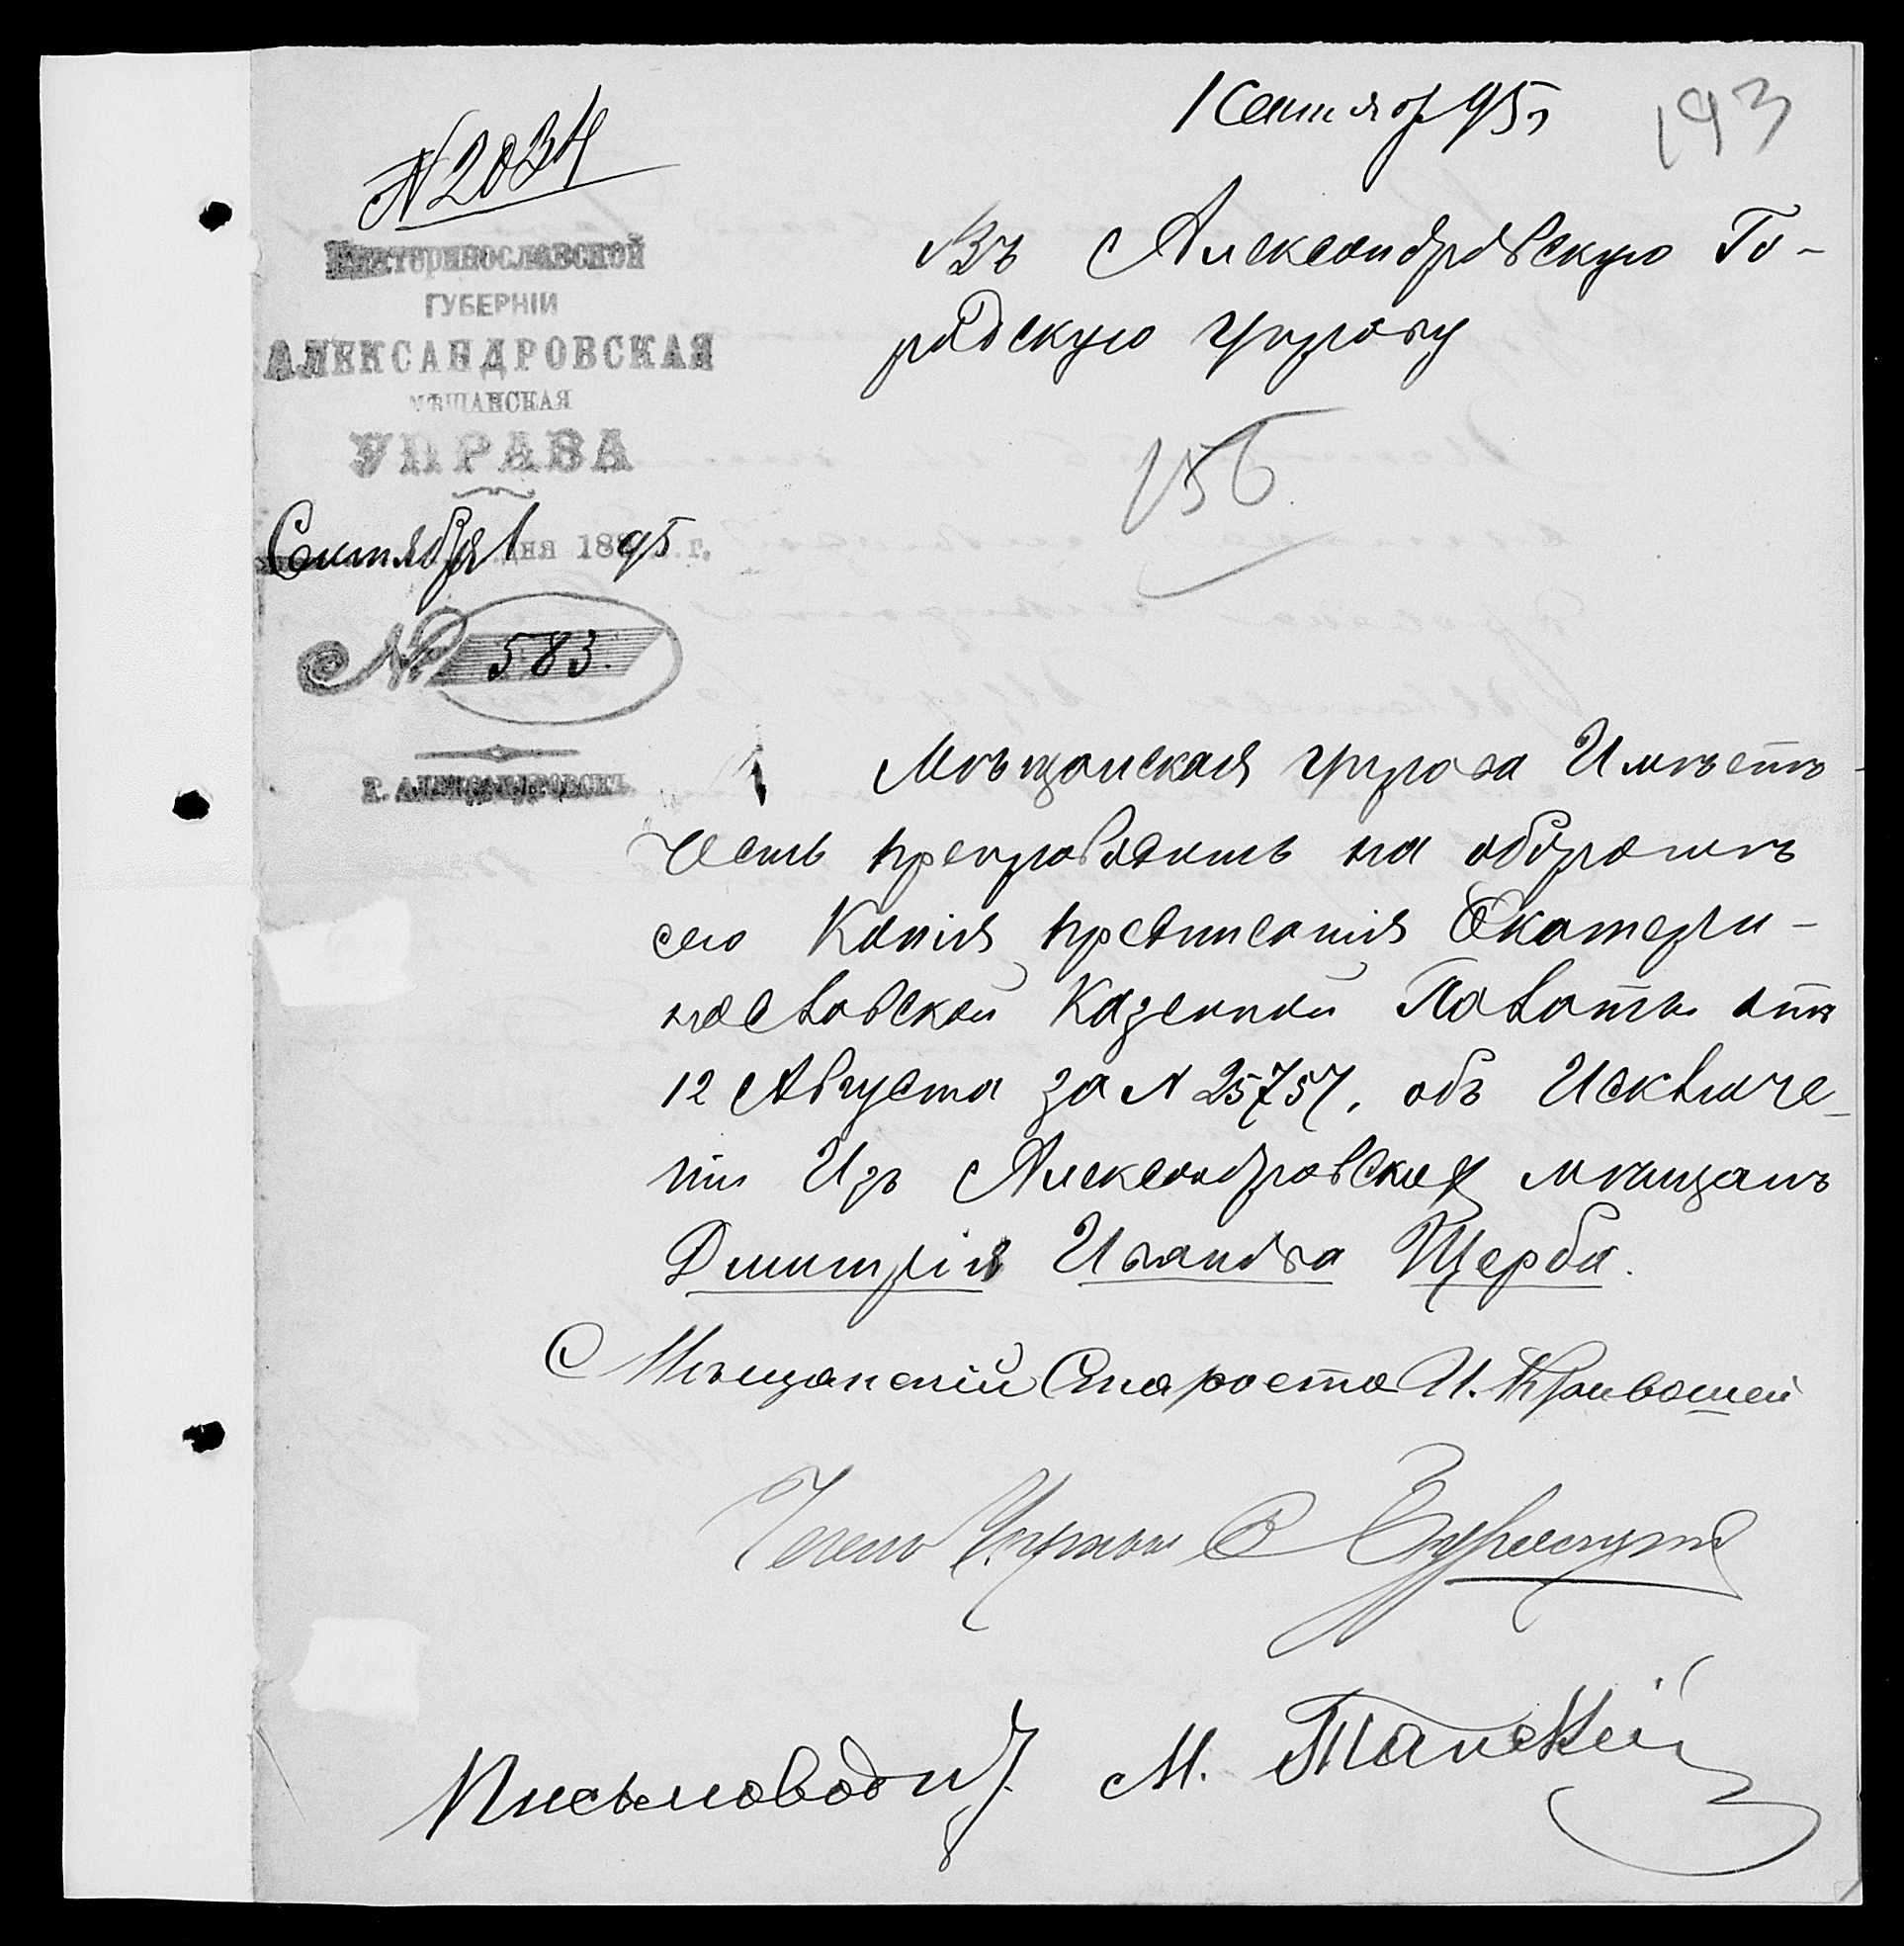 1 Сентяб 95 г
193
№ 2034
ЕКАТЕРИНОСЛАВСКОЙ
ГУБЕРНІИ
АЛЕКСАНДРОВСКАЯ
МѢЩАНСКАЯ
УПРАВА
Сентября 1 дня 1895 г.
№ 583.
Г. АЛЕКСАНДРОВСКЪ.
Въ Александровскую Го-
родскую управу
156
Мѣщанская управа Имѣетъ
честь препроводить на оборотѣ
сего Копія предписанія Екатери-
нославской Казенной Палаты отъ
12 Августа за № 25757, объ Исключе-
ніи Изъ Александровскихъ мѣщанъ
Дмитрія Иванова Щерба.
С Мѣщанскій Староста И. Кривошей
Членъ Управы
Письмоводит. М.